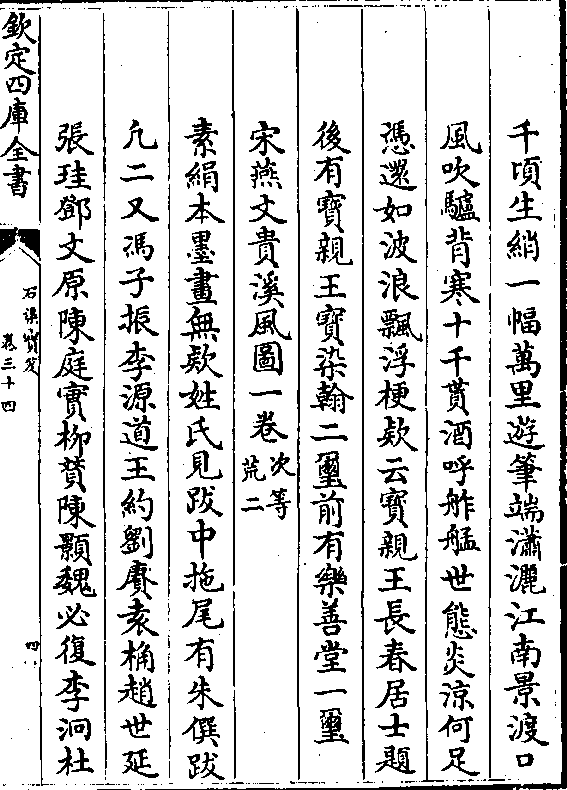 千頃生綃一幅萬里遊筆端瀟灑江南景渡口
風吹驢背寒十千貰酒呼舴艋世態炎涼何足
憑還如波浪飄浮梗欵云寳親王長春居士題
後有寳親王寳染翰二璽前有樂善堂一璽
宋燕文貴溪風圖一卷次等荒二
素絹本墨畫無欵姓氏見跋中拖尾有朱僎跋
凡二又馮子振李源道王約劉賡袁桷趙世延
張珪鄧文原陳庭實柳贊陳顥魏必復李泂杜
欽定四庫全書
石渠寳笈
卷三十四
四